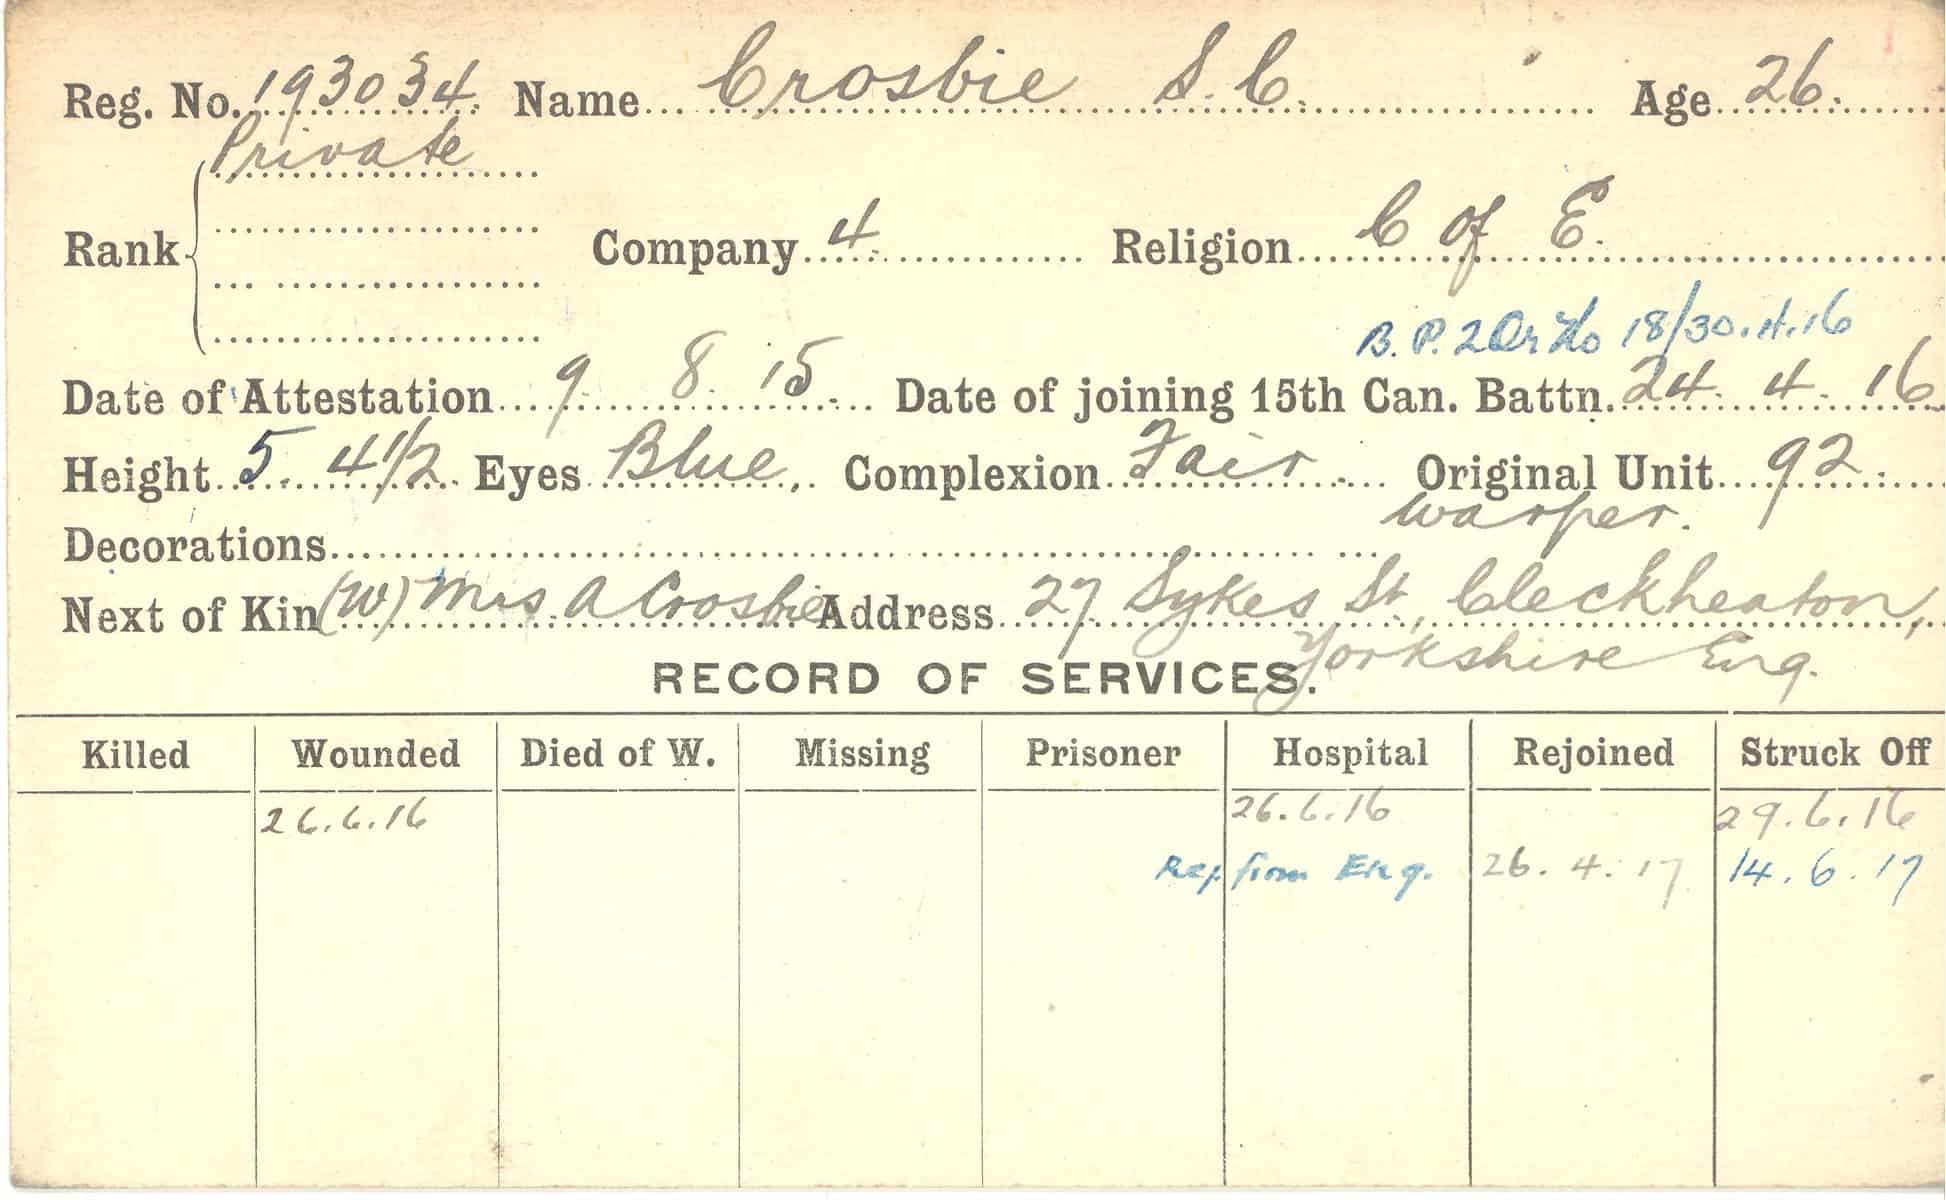 Reg. No. 193034 Name Crosbie S. C. Age 26.
Private
Rank Company 4 Religion C of E.
B. P. 2 Or No 18/30.4.16
Date of Attestation 9 8. 15 Date of joining 15th Can. Battn. 24. 4. 16
Height 5. 4 1/2 Eyes Blue, Complexion Fair Original Unit 92.
Warper.
Decorations
Next of Kin (W) Mrs A Crosbie Address 27 Sykes St, Cleckheaton,
Yorkshire Eng.
RECORD OF SERVICES.
Killed Wounded Died of W. Missing Prisoner Hospital Rejoined Struck Off
26.6.16 26.6.16 29.6.16
Rej. from Eng. 26.4.17 14.6.17